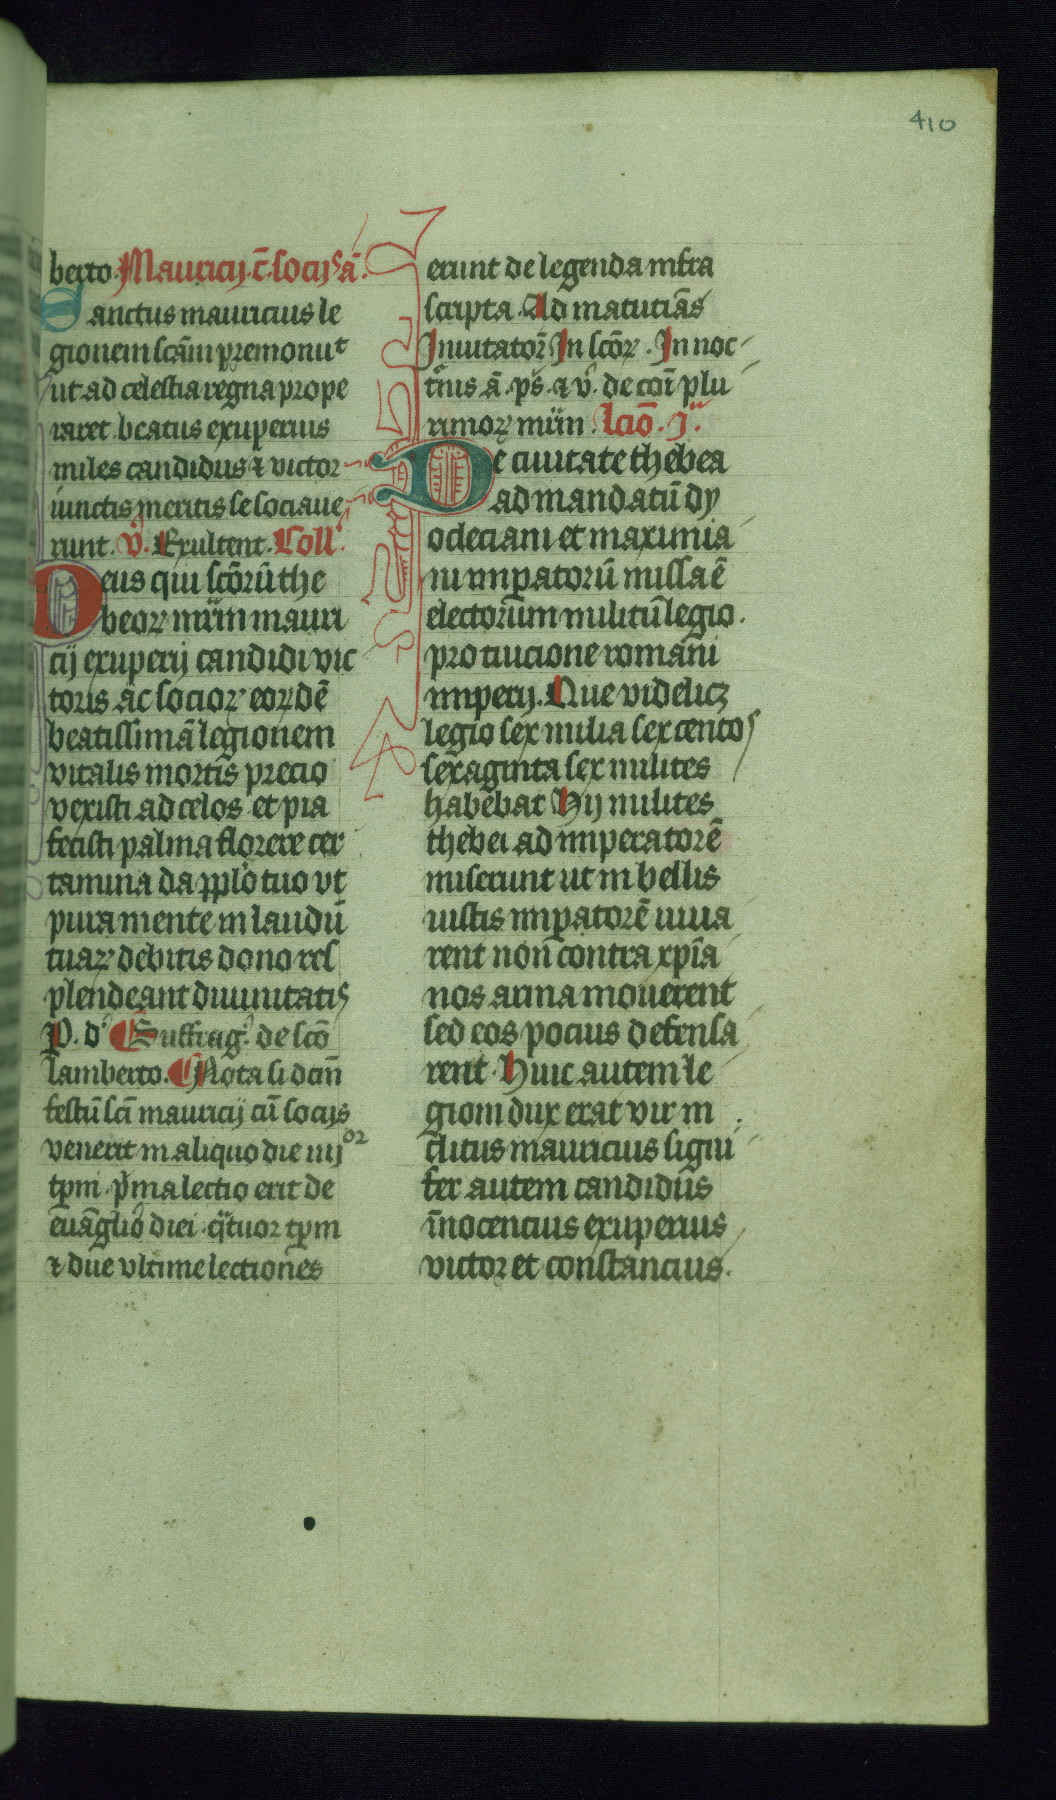 410
berto. Mauricij. c̄. socijs ā.
Sanctus mauricius le
gionem scām premonuᵗ
ut ad celestia regna prope
raret beatus exuperius
miles candidus ⁊ victor
iunctis meritis se sociaue
runt. v̓. Exultent. Coll̓.
Deus qui scōrū the
beoꝝ mr̄im mauri
cij exuperij candidi vic
toris ac socioꝝ eordē
beatissimā legionem
vitalis mortis precio
vexisti ad celos et pia
fecisti palma florere cer
tamina da ꝓplo tuo vt
pura mente in laudū
tuaꝝ debitis dono res
plendeant diuinitatis
P. d̓ Suffrag̓. de scō
lamberto. Nota si dum̄
festū sc̄i mauricij cū socijs
venerit in aliquo die iiijᵒʳ
tp̄m p̓ma lectio erit de
euāglio diei q̓tuor tp̄m
⁊ due vltime lectiones
erunt de legenda infra
scripta. Ad matutīas
Inuitator̄ In scōꝝ. In noc
t̓nis ā. ps̄. ⁊ v̓. de cōi plu
rimoꝝ mr̄im. Lcīo. jᵃ.
De ciuitate thebea
ad mandatū dy
ocleciani et maximia
ni imꝑatorū missa ē
electorum militū legio.
pro tuicione romani
imperij. Que videlicꝫ
legio sex milia sexcentos
sexaginta sex milites
habebat Hij milites
thebei ad imperatorē
miserunt ut in bellis
iustis imꝑatorē iuua
rent non contra xp̄ia
nos arma mouerent
sed eos pocius defensa
rent. Huic autem le
gioni dux erat vir in
clitus mauricius signi
fer autem candidus
īnocencius exuperius
victor et constancius.